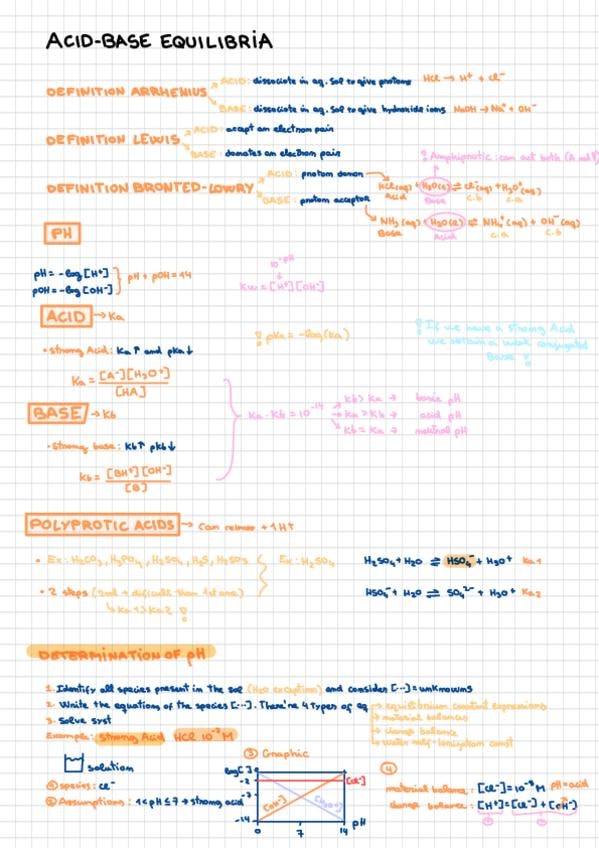 ACID-BASE EQUILIBRIA
DEFINITION ARRHENIUS
ACID: dissociate in aq. sol to give protons HCl → H⁺ + Cl⁻
BASE: dissociate in aq. sol to give hydroxide ions NaOH → Na⁺ + OH⁻
DEFINITION LEWIS
ACID: accept an electron pair
BASE: donates an electron pair
! Amphiprotic: can act both (A and B)
DEFINITION BRONTED-LOWRY
ACID: protom donor
HCl(aq) + H₂O(l) ⇌ Cl⁻(aq) + H₃O⁺(aq)
Acid Base c.b c.a
BASE: protom acceptor
NH₃(aq) + H₂O(l) ⇌ NH₄⁺(aq) + OH⁻(aq)
Base Acid c.a c.b
PH
pH = -log[H⁺]
pOH = -log[OH⁻]
pH + pOH = 14
10^-pH
Kw = [H⁺][OH⁻]
ACID → Ka
! pKa = -log(Ka)
! If we have a strong Acid
we obtain a weak conjugated
Base !
• strong Acid: Ka↑ and pKa↓
Ka = [A⁻][H₃O⁺] / [HA]
BASE → Kb
Ka · Kb = 10⁻¹⁴
Kb > Ka → basic pH
Ka > Kb → acid pH
Kb = Ka → neutral pH
• strong base: Kb↑ pKb↓
Kb = [BH⁺][OH⁻] / [B]
POLYPROTIC ACIDS → Can release +1H⁺
• Ex: H₂CO₃, H₃PO₄, H₂SO₄, H₂S, H₂SO₃
Ex: H₂SO₄
H₂SO₄ + H₂O ⇌ HSO₄⁻ + H₃O⁺ Ka1
• 2 steps (2nd + difficult than 1st one)
↳ Ka1 > Ka2 !
HSO₄⁻ + H₂O ⇌ SO₄²⁻ + H₃O⁺ Ka2
DETERMINATION OF pH
1. Identify all species present in the sol (H₂O exception) and consider [...] = unknowns
2. Write the equations of the species [...]. There're 4 types of eq
→ equilibrium constant expressions
→ material balances
→ charge balance
→ water
3. Solve syst
Example: Strong Acid HCl 10⁻² M
solution
① species: Cl⁻
② Assumptions: 1 < pH ≤ 7 → strong acid
③ Graphic
log[ ]
-2
-7
-14
[Cl⁻]
[OH⁻]
[H₃O⁺]
0 7 14 pH
④
material balance: [Cl⁻] = 10⁻² M pH = acid
charge balance: [H⁺] = [Cl⁻] + [OH⁻]